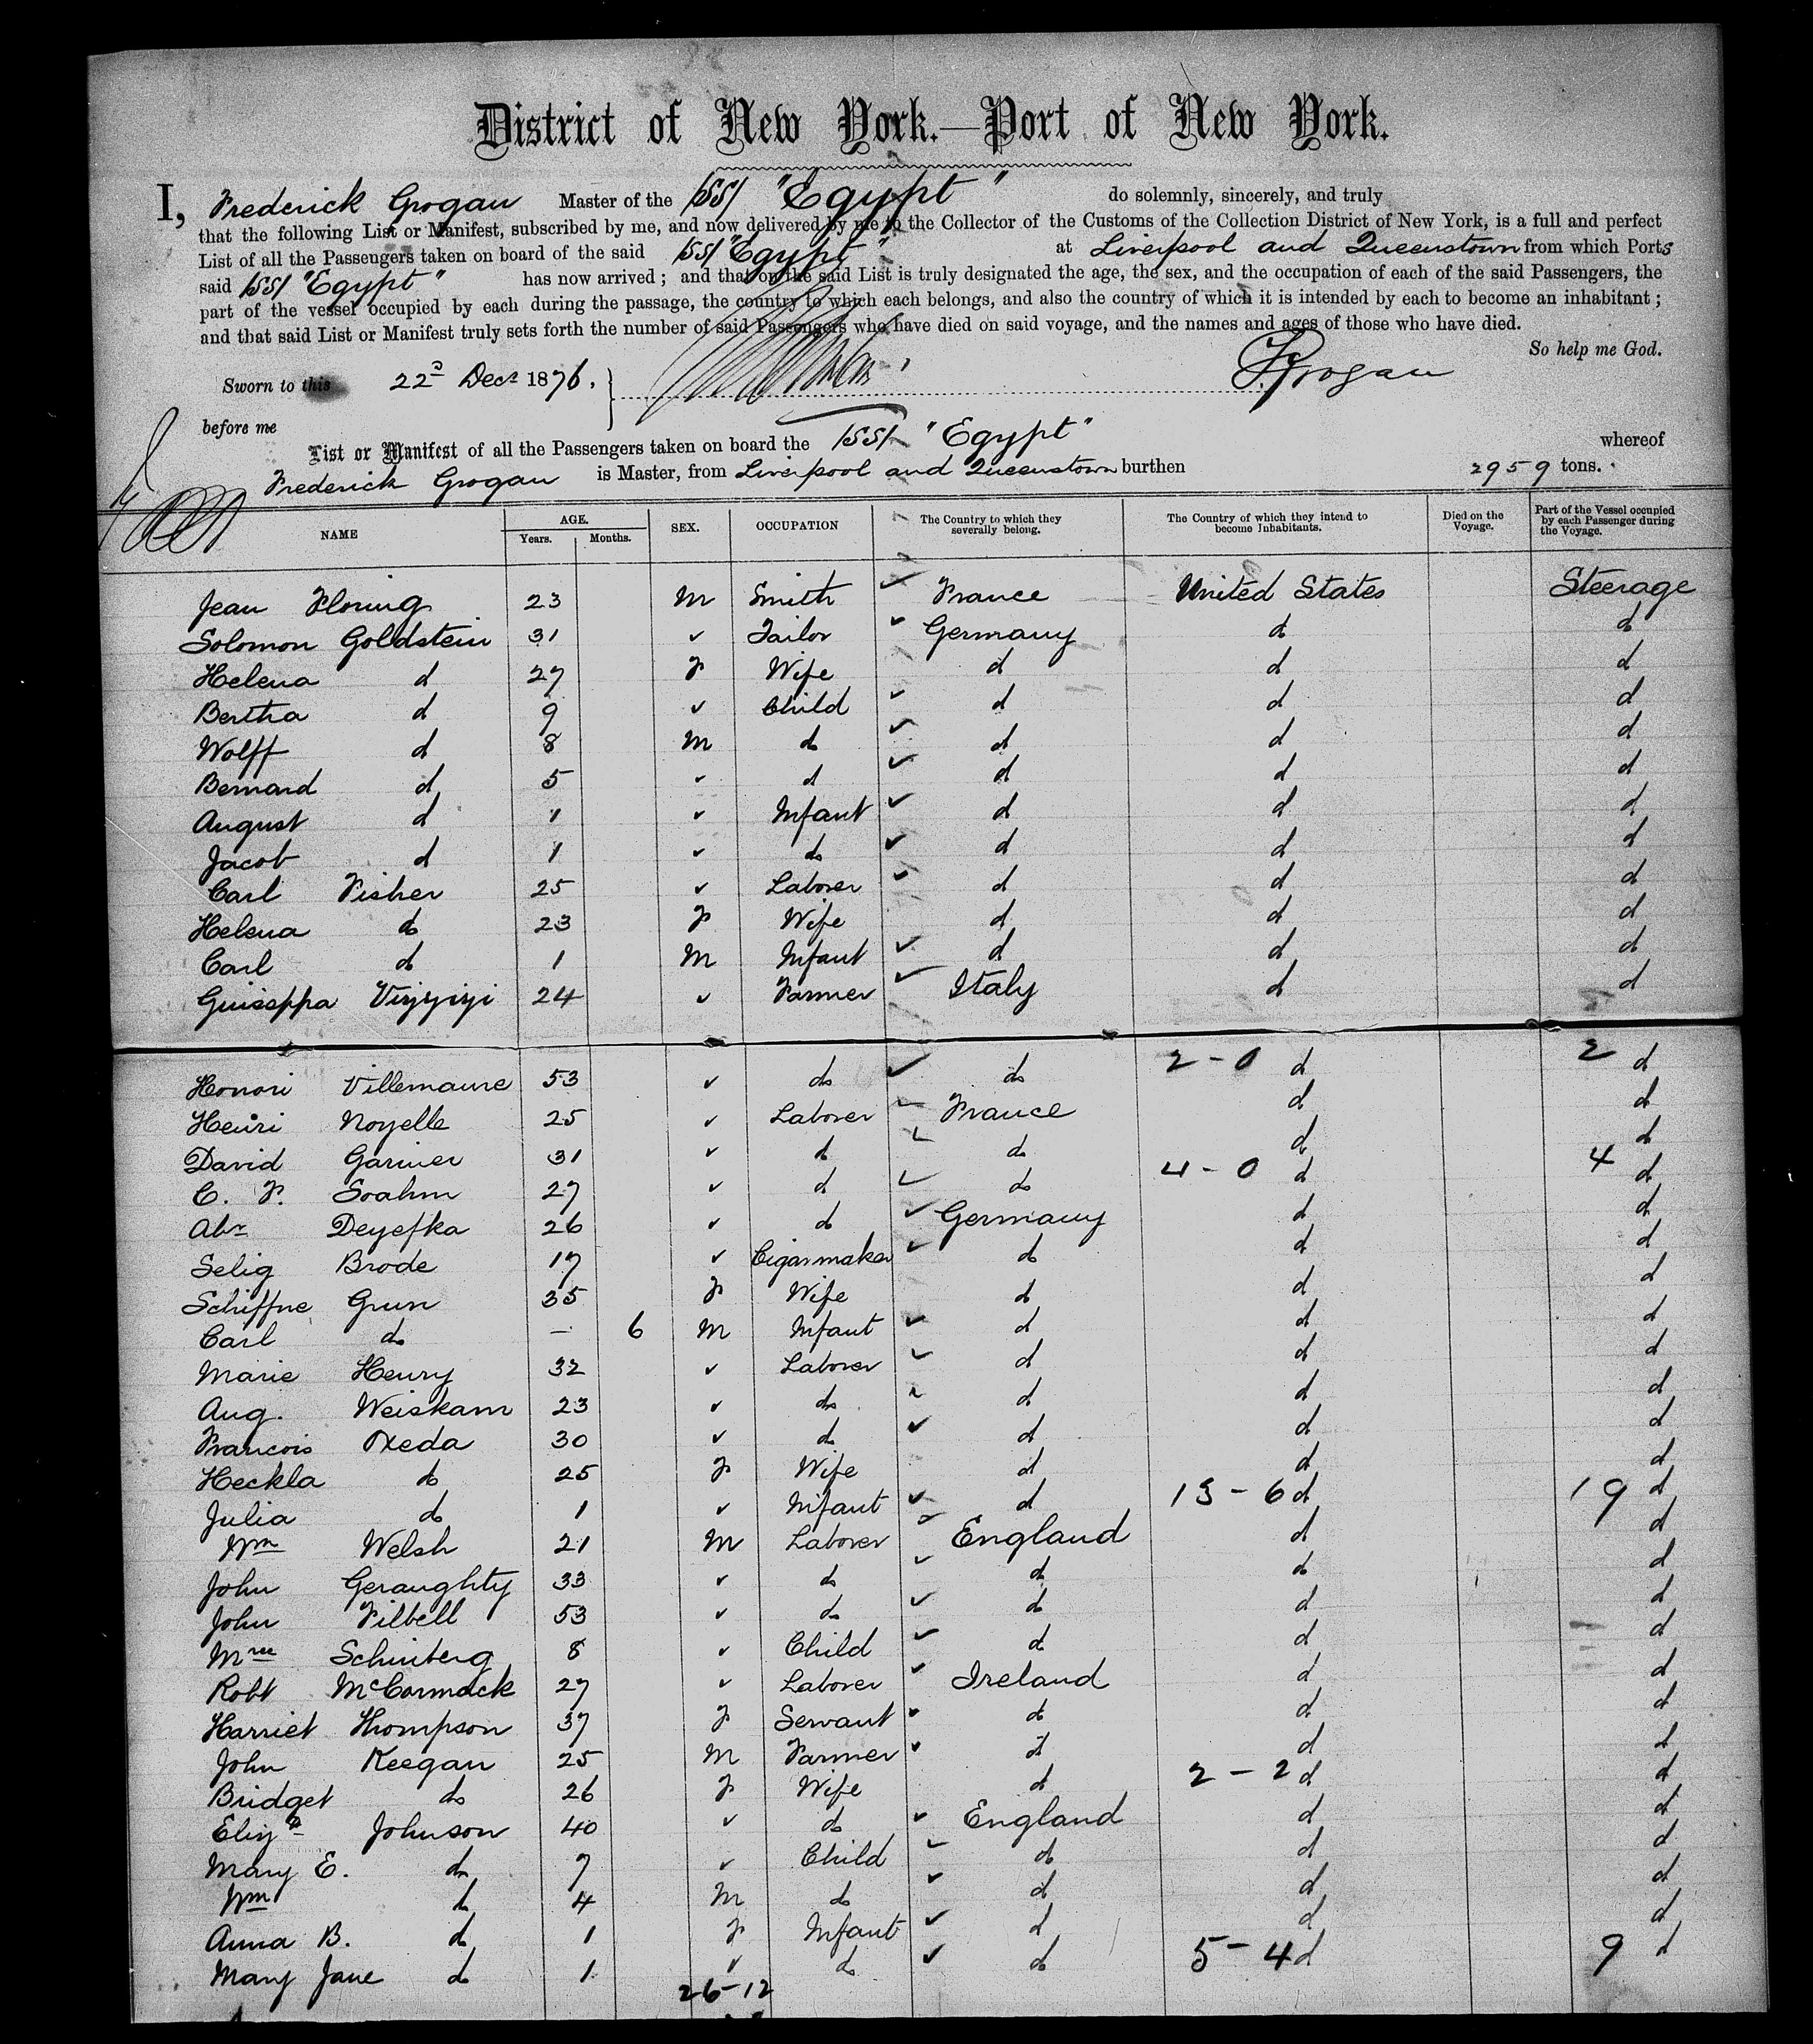 District of New York.—Port of New York.
I, Frederick Grogan Master of the SS "Egypt" do solemnly, sincerely, and truly
that the following List or Manifest, subscribed by me, and now delivered by me to the Collector of the Customs of the Collection District of New York, is a full and perfect
List of all the Passengers taken on board of the said SS "Egypt" at Liverpool and Queenstown from which Ports
said SS "Egypt" has now arrived; and that on the said List is truly designated the age, the sex, and the occupation of each of the said Passengers, the
part of the vessel occupied by each during the passage, the country to which each belongs, and also the country of which it is intended by each to become an inhabitant;
and that said List or Manifest truly sets forth the number of said Passengers who have died on said voyage, and the names and ages of those who have died.
So help me God.
Sworn to this 22d Decr 1876. FGrogan
before me
List or Manifest of all the Passengers taken on board the SS "Egypt" whereof
Frederick Grogan is Master, from Liverpool and Queenstown burthen 2959 tons.
NAME AGE. Years. Months. SEX. OCCUPATION The Country to which they severally belong. The Country of which they intend to become Inhabitants. Died on the Voyage. Part of the Vessel occupied by each Passenger during the Voyage.
Jean 23 M Smith ✓ France United States Steerage
Solomon Goldstein 31 ✓ Tailor ✓ Germany do do
Helena d 27 F Wife d d d
Bertha d 9 ✓ Child ✓ d d d
Wolff d 8 M do ✓ d d d
Bernard d 5 ✓ d ✓ d d d
August d 1 ✓ Infant ✓ d d d
Jacob d 1 ✓ do ✓ d d d
Carl Fisher 25 ✓ Laborer ✓ d d d
Helena do 23 F Wife d d d
Carl do 1 M Infant ✓ d d d
Guisseppa 24 ✓ Farmer ✓ Italy d d
Honori Villemaure 53 ✓ do ✓ do 2-0 d 2 d
Henri Noyelle 25 ✓ Laborer ✓ France d d
David Garnier 31 ✓ d ✓ do d d
C. F. 27 ✓ d ✓ do 4-0 d 4 d
Abr Deyefka 26 ✓ d ✓ Germany d d
Selig Brode 17 ✓ Cigarmaker ✓ d d d
Schiffne Grun 35 F Wife d d d
Carl do — 6 M Infant ✓ d d d
Marie Henry 32 ✓ Laborer ✓ d d d
Aug. Weiskam 23 ✓ do ✓ d d d
Francois Oxeda 30 ✓ d ✓ d d d
Heckla do 25 F Wife d d d
Julia do 1 ✓ Infant ✓ d 13-6 d 19 d
Wm Welsh 21 M Laborer ✓ England d d
John Geraughty 33 ✓ do ✓ d d d
John Filbell 53 ✓ do ✓ d d d
Schinberg 8 ✓ Child ✓ d d d
Robt McCormack 27 ✓ Laborer ✓ Ireland d d
Harriet Thompson 37 F Servant ✓ d d d
John Keegan 25 M Farmer ✓ d d d
Bridget do 26 F Wife d 2-2 d d
Eliza Johnson 40 ✓ do ✓ England d d
Mary E. do 7 ✓ Child ✓ do d d
Wm do 4 M do ✓ d d d
Anna B. do 1 F Infant ✓ d d d
Mary Jane do 1 ✓ do ✓ d 5-4 d 9 d
26-12